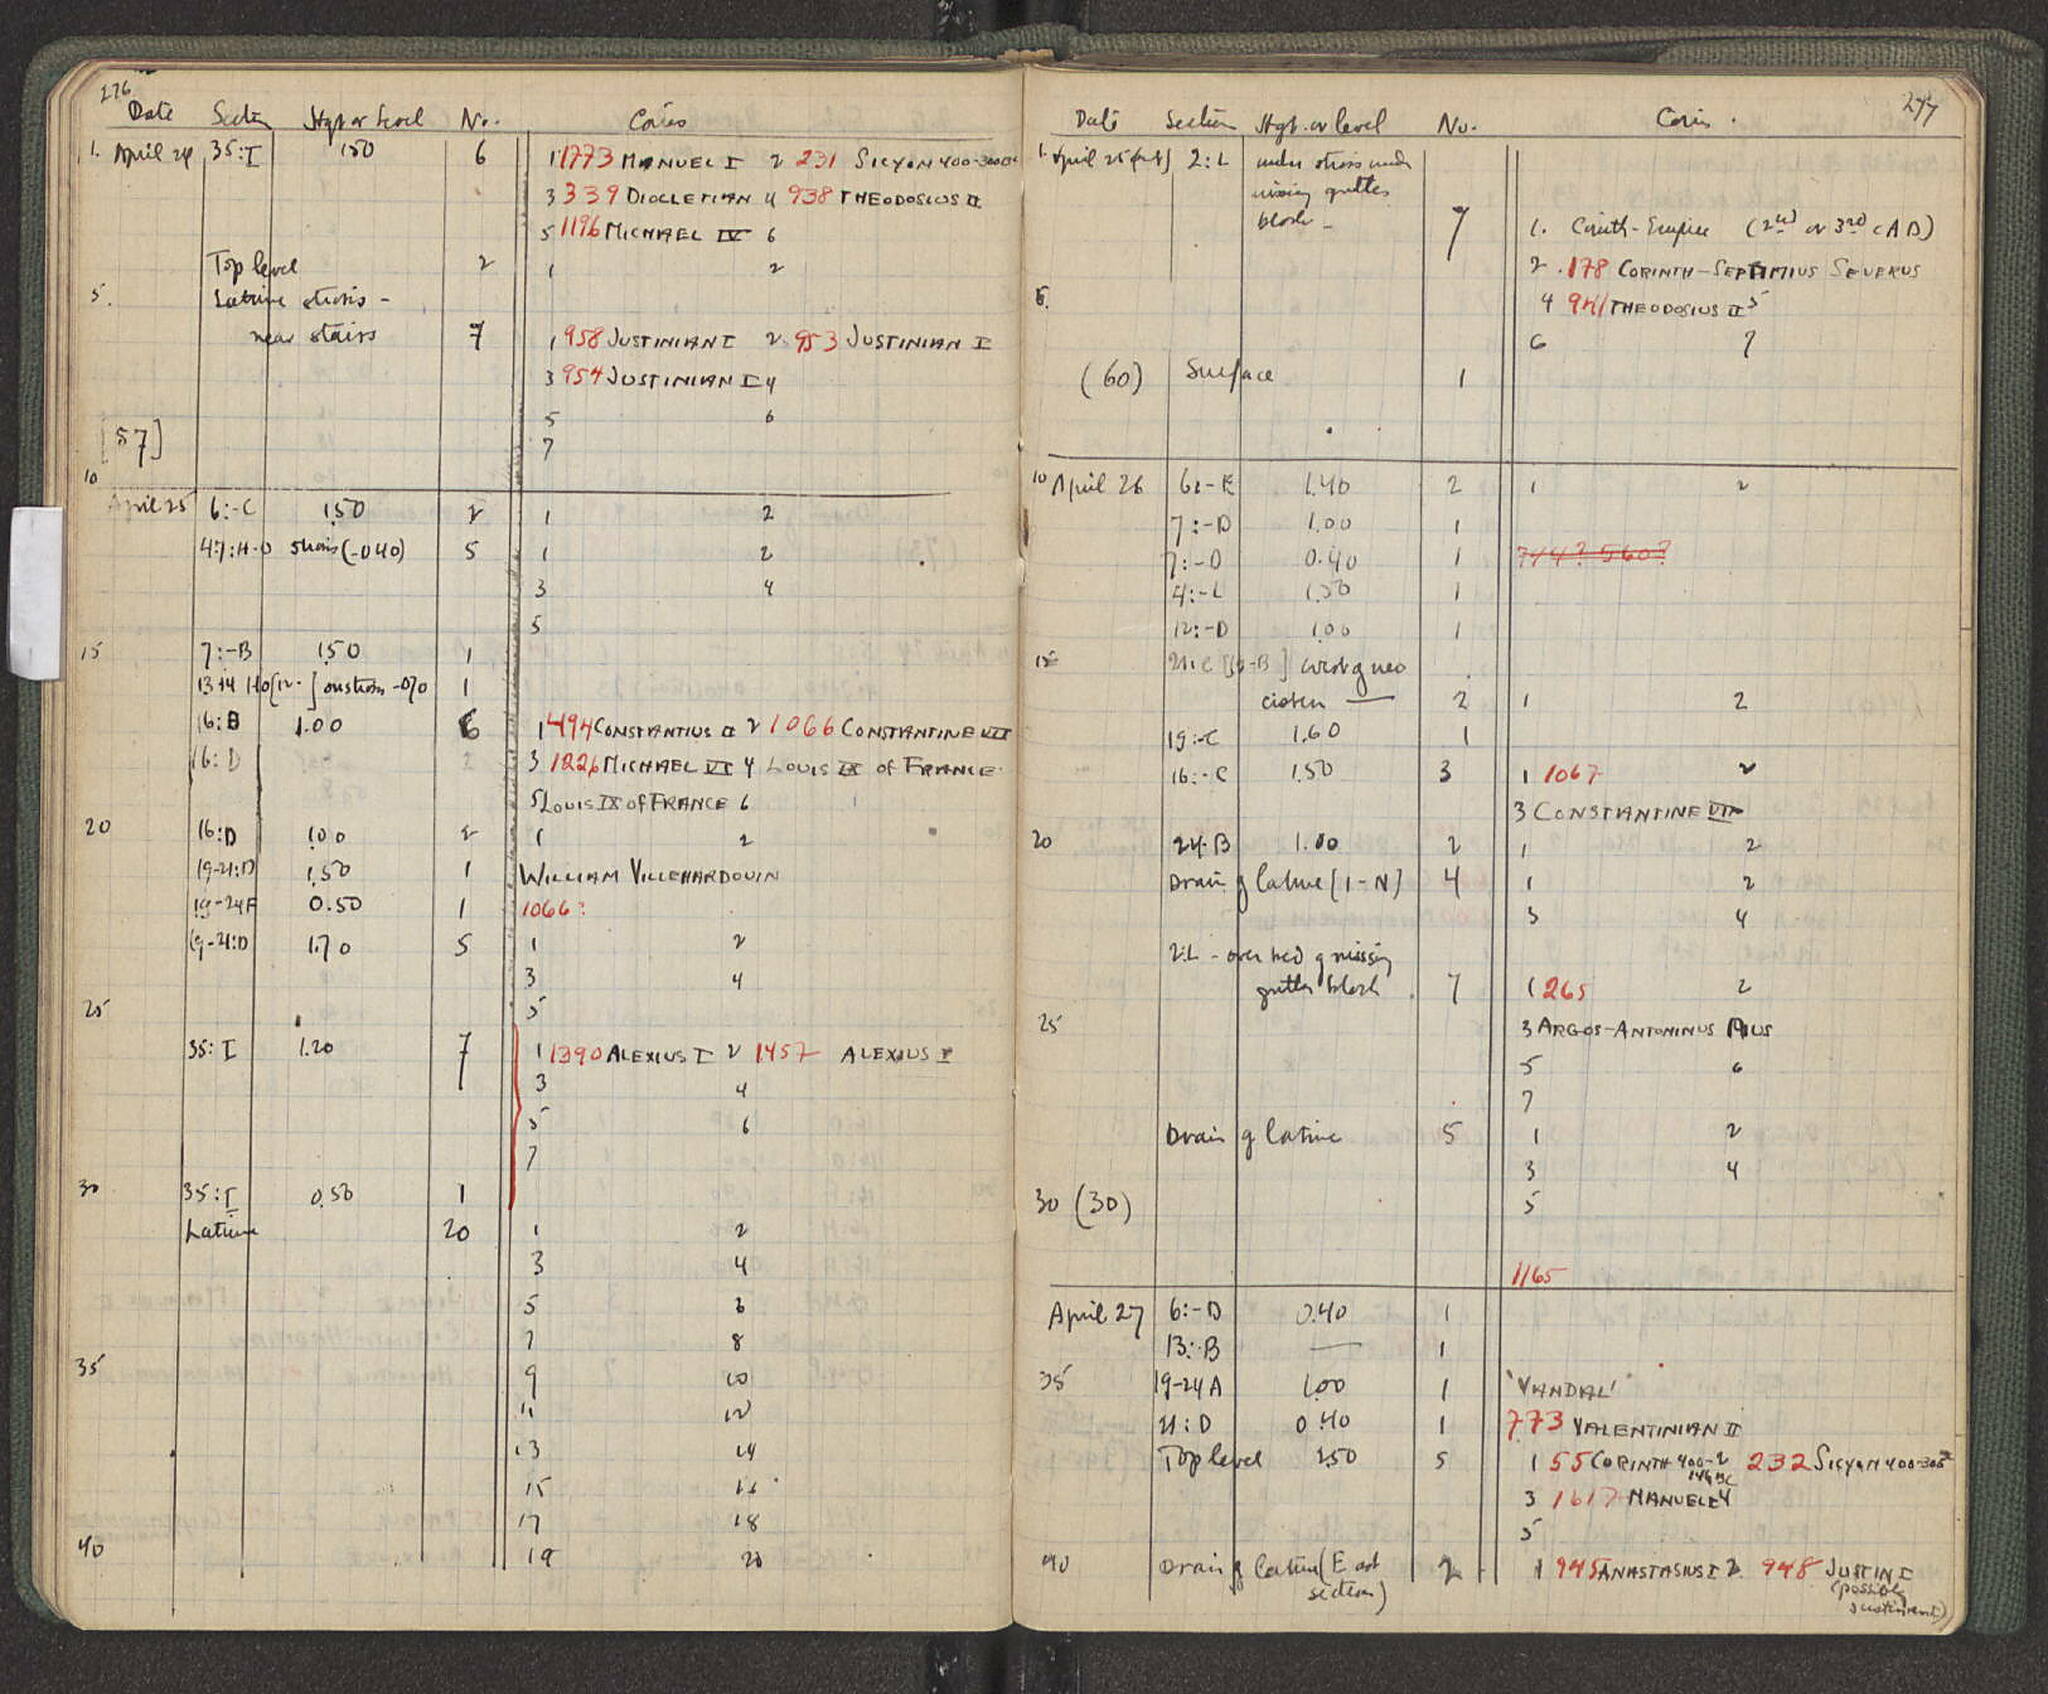 276
Date Section Hgt or level No. Coins
1. April 24 35:I 1.50 6 1 1773 MANUEL I 2 231 SICYON 400-300 BC
3 339 DIOCLETIAN 4 938 THEODOSIUS II
5 1196 MICHAEL IV 6
Top level 2 1 2
5. Latrine stosis -
near stairs 7 1 958 JUSTINIAN I 2 953 JUSTINIAN I
3 954 JUSTINIAN I 4
5 6
[57] 7
10
April 25 6:-C 1.50 2 1 2
47:H-O (-040) 5 1 2
3 4
5
15 7:-B 1.50 1
13+14 -070 1
16:B 1.00 6 1 494 CONSTANTIUS II 2 1066 CONSTANTINE VII
16:D 2 3 1226 MICHAEL VI 4 LOUIS IX OF FRANCE
5 LOUIS IX OF FRANCE 6
20 16:D 1.00 2 1 2
19-21:D 1.50 1 WILLIAM VILLEHARDOUIN
19-24F 0.50 1 1066?
19-21:D 1.70 5 1 2
3 4
25 5
35:I 1.20 7 1 1390 ALEXIUS I 2 1457 ALEXIUS I
3 4
5 6
7
30 35:I 0.50 1
Latrine 20 1 2
3 4
5 6
7 8
35 9 10
11 12
13 14
15 16
17 18
40 19 20
277
Date Section Hgt. or level No. Coins.
1. April 25 2:L under under
missing gutter
block - 7 1. Corinth-Empire (2nd or 3rd c AD)
2 178 CORINTH-SEPTIMIUS SEVERUS
5. 4 941 THEODOSIUS II 5
6 7
(60) Surface 1
10 April 26 6:-E 1.40 2 1 2
7:-D 1.00 1
7:-D 0.40 1 744? 560?
4:-L 1.50 1
12:-D 1.00 1
15
cistern — 2 1 2
19:-C 1.60 1
16:-C 1.50 3 1 1067 2
3 CONSTANTINE VII
20 24-B 1.00 2 1 2
Drain of latrine [1-N] 4 1 2
3 4
2:L - over bed of missing
gutter block. 7 1 265 2
25 3 ARGOS-ANTONINUS PIUS
5 6
7
Drain of latrine 5 1 2
3 4
30 (30) 5
1165
April 27 6:-D 0.40 1
13:-B — 1
35 19-24A 1.00 1 'VANDAL'
21:D 0.40 1 773 VALENTINIAN II
Top level 2.50 5 1 55 CORINTH 400-146 BC 2 232 SICYON 400-300
3 1617 MANUEL I 4
5
40 Drain of latrine (East section) 2 1 945 ANASTASIUS I 2 948 JUSTIN I
(possibly
Justinian I)